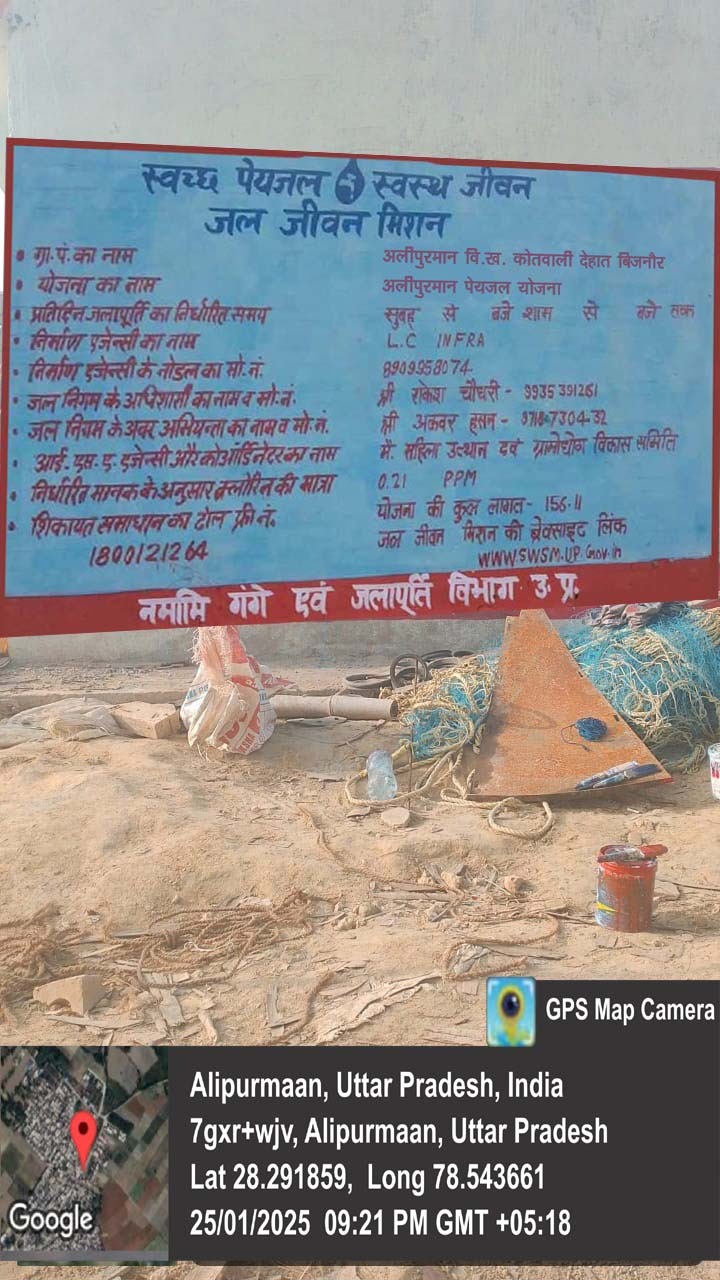 स्वच्छ पेयजल स्वस्थ जीवन
जल जीवन मिशन
• ग्रा.पं.का नाम अलीपुरमान वि.ख. कोतवाली देहात बिजनौर
• योजना का नाम अलीपुरमान पेयजल योजना
• प्रतिदिन जलापूर्ति का निर्धारित समय सुबह से बजे शाम से बजे तक
• निर्माण एजेन्सी का नाम L.C INFRA
• निर्माण एजेन्सी के नोडल का मो.नं. 8909958074
• जल निगम के अधिशासी का नाम व मो.नं. श्री राकेश चौधरी - 9935391261
• जल निगम के अवर अभियन्ता का नाम व मो.नं. श्री अकवर हसन -
• आई.एस.ए. एजेन्सी और कोऑर्डिनेटर का नाम मै. महिला उत्थान एवं ग्रामोद्योग विकास समिति
• निर्धारित मानक के अनुसार क्लोरिन की मात्रा 0.21 PPM
• शिकायत समाधान का टोल फ्री नं. योजना की कुल लागत - 156.11
180012126४ जल जीवन मिशन की बेवसाइट लिंक
WWW.SWSM.UP.Gov.in
नमामि गंगे एवं जलापूर्ति विभाग उ.प्र.
GPS Map Camera
Alipurmaan, Uttar Pradesh, India
7gxr+wjv, Alipurmaan, Uttar Pradesh
Lat 28.291859, Long 78.543661
25/01/2025 09:21 PM GMT +05:18
Google